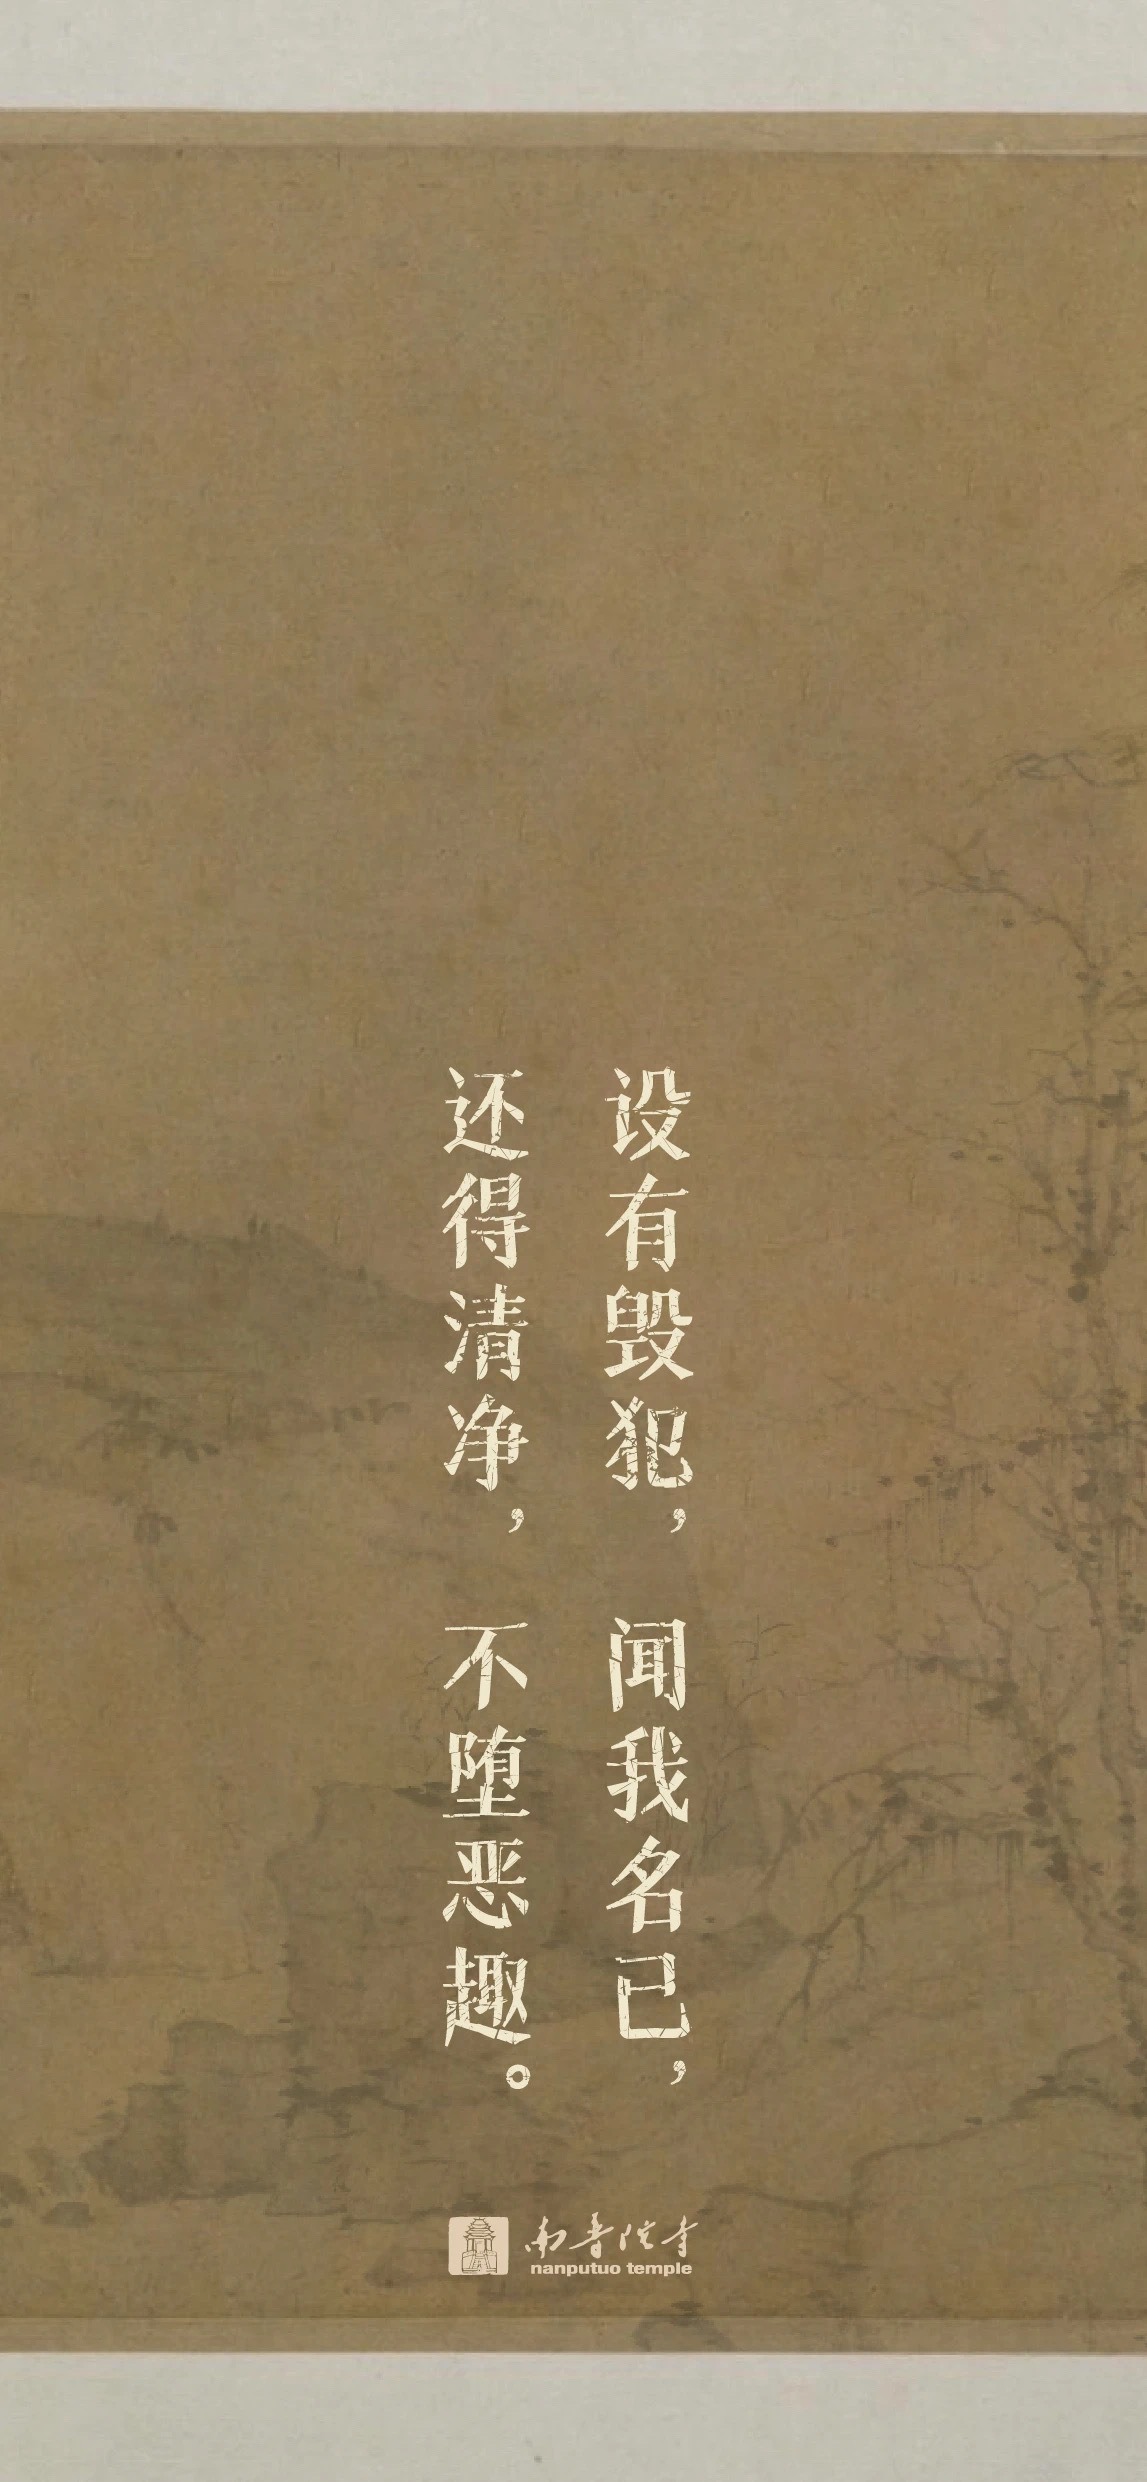 设有毁犯，闻我名已，
还得清净，不堕恶趣。
南普陀寺
nanputuo temple